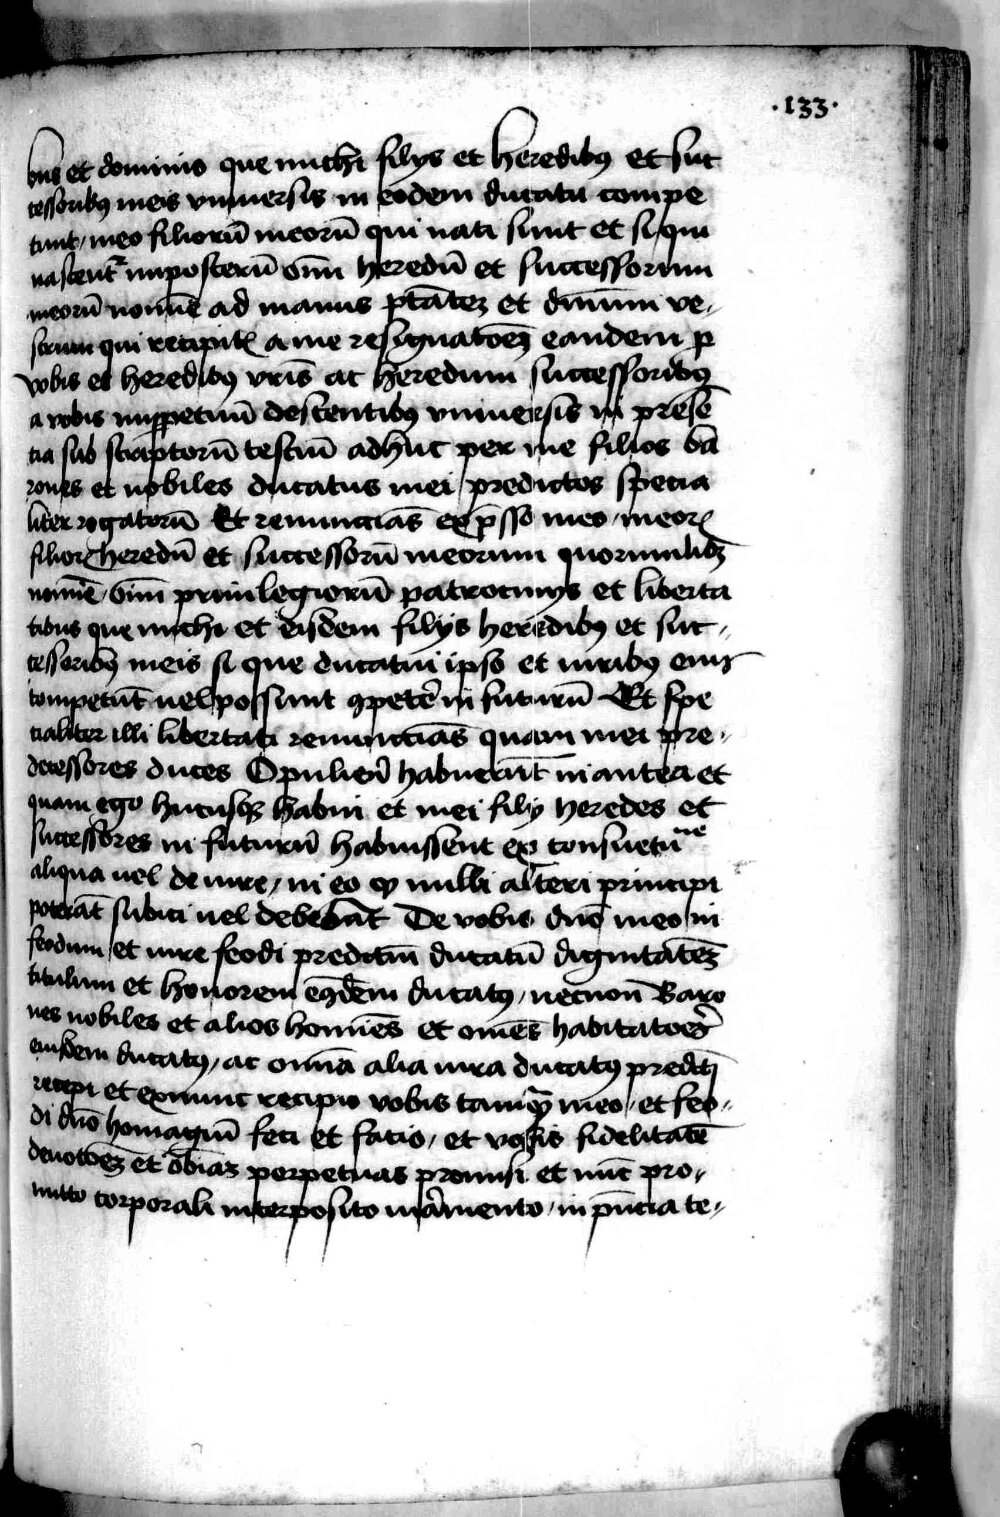 ·133·
bus et dominio que michi filijs et heredibus et suc
cessoribus meis vniuersis in eodem ducatu compe
tunt / meo filiorū meorū qui nati sunt et si qui
nascent᷑ inposterū om̄ heredū et successorum
meorū nomīe ad manus p̄tātē et dn̄ium ve-
strum qui recipitꝭ a me resignatōeʒ eandem ꝑ
vobis et heredibꝯ vrīs ac heredum successoribꝯ
a vobis inꝑpetuū descentibꝯ vniuersis in presē
cia sub scriptorū testiū adhuc per me filios bā
rones et nobiles ducatus mei predictos specia
liter rogatorū Et renunccians exp̄sso meo / meorꝝ
filiorꝝ heredū et successorū meorum quorumlibʒ
nomīe / om̄ī priuilegiorū patrocinijs et liberta
tibus que michi et eisdem filijs heredibꝯ et suc-
cessoribꝯ meis si que ducatui ipso et iuribꝯ eius
competūt uel possunt ꝯpetē in futurū Et spe
cialiter illi libertati renunccians quam mei pre-
decessores duces Opulieñ habuerūt in antea et
quam ego hucusqʒ habui et mei filij heredes et
successores in futurū habuissent ex consuetuⁿᵉ
aliqua uel de iure / in eo qꝫ nulli alteri principi
poterāt subici uel debebāt De vobis dnō meo in
feodum et iure feodi predictū ducatū dignitatēʒ
titulum et honorem eiꝯdem ducatꝯ / necnon Baro
nes nobiles et alios homīes et omēs habitatoēs
eiusdem ducatꝯ / ac omīa alia iura ducatꝯ predcī
recepi et exnunc recipio vobis tamqꝫ meo / et feo-
di dnō homagiū feci et facio / et vobis fidelitatē
deuotōeʒ et ob̄iaʒ perpetuas promisi et nūc pro-
mitto corporali interposito iuramento / in p̄ncia te-